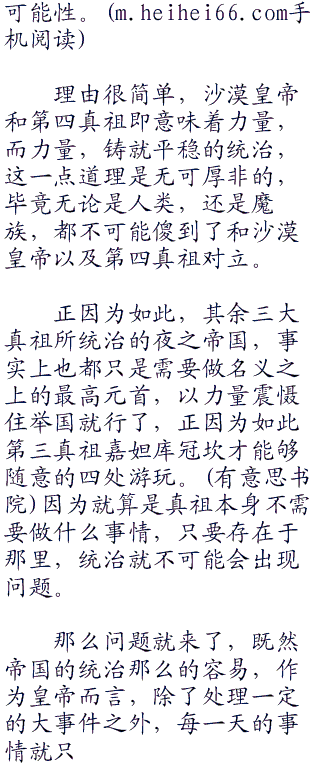 可能性。(m.heihei66.com手
机阅读)
理由很简单，沙漠皇帝
和第四真祖即意味着力量，
而力量，铸就平稳的统治，
这一点道理是无可厚非的，
毕竟无论是人类，还是魔
族，都不可能傻到了和沙漠
皇帝以及第四真祖对立。
正因为如此，其余三大
真祖所统治的夜之帝国，事
实上也都只是需要做名义之
上的最高元首，以力量震慑
住举国就行了，正因为如此
第三真祖嘉妲库冠坎才能够
随意的四处游玩。(有意思书
院)因为就算是真祖本身不需
要做什么事情，只要存在于
那里，统治就不可能会出现
问题。
那么问题就来了，既然
帝国的统治那么的容易，作
为皇帝而言，除了处理一定
的大事件之外，每一天的事
情就只